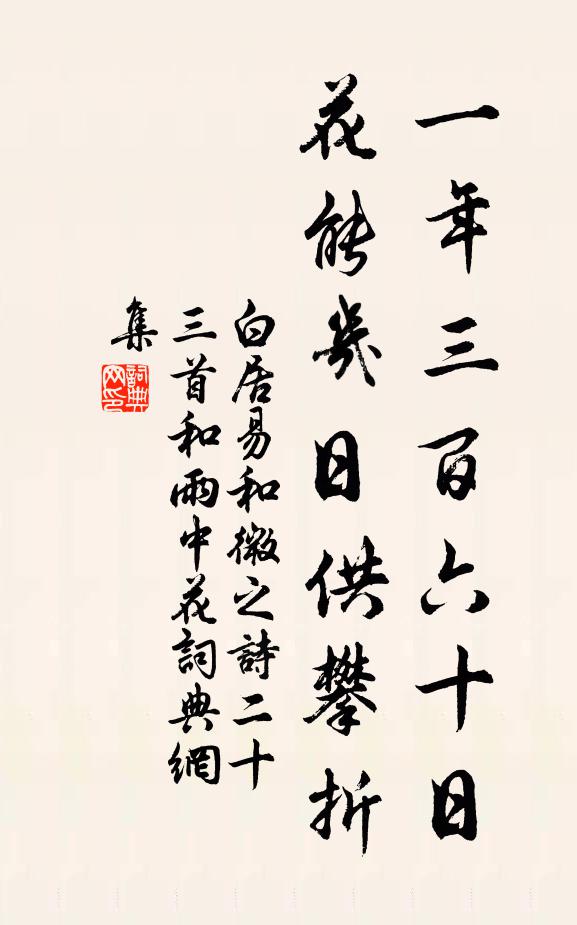 一年三百六十日
花能幾日供攀折
白居易和微之詩二十
三首和雨中花詞典網
集
詞典
网印